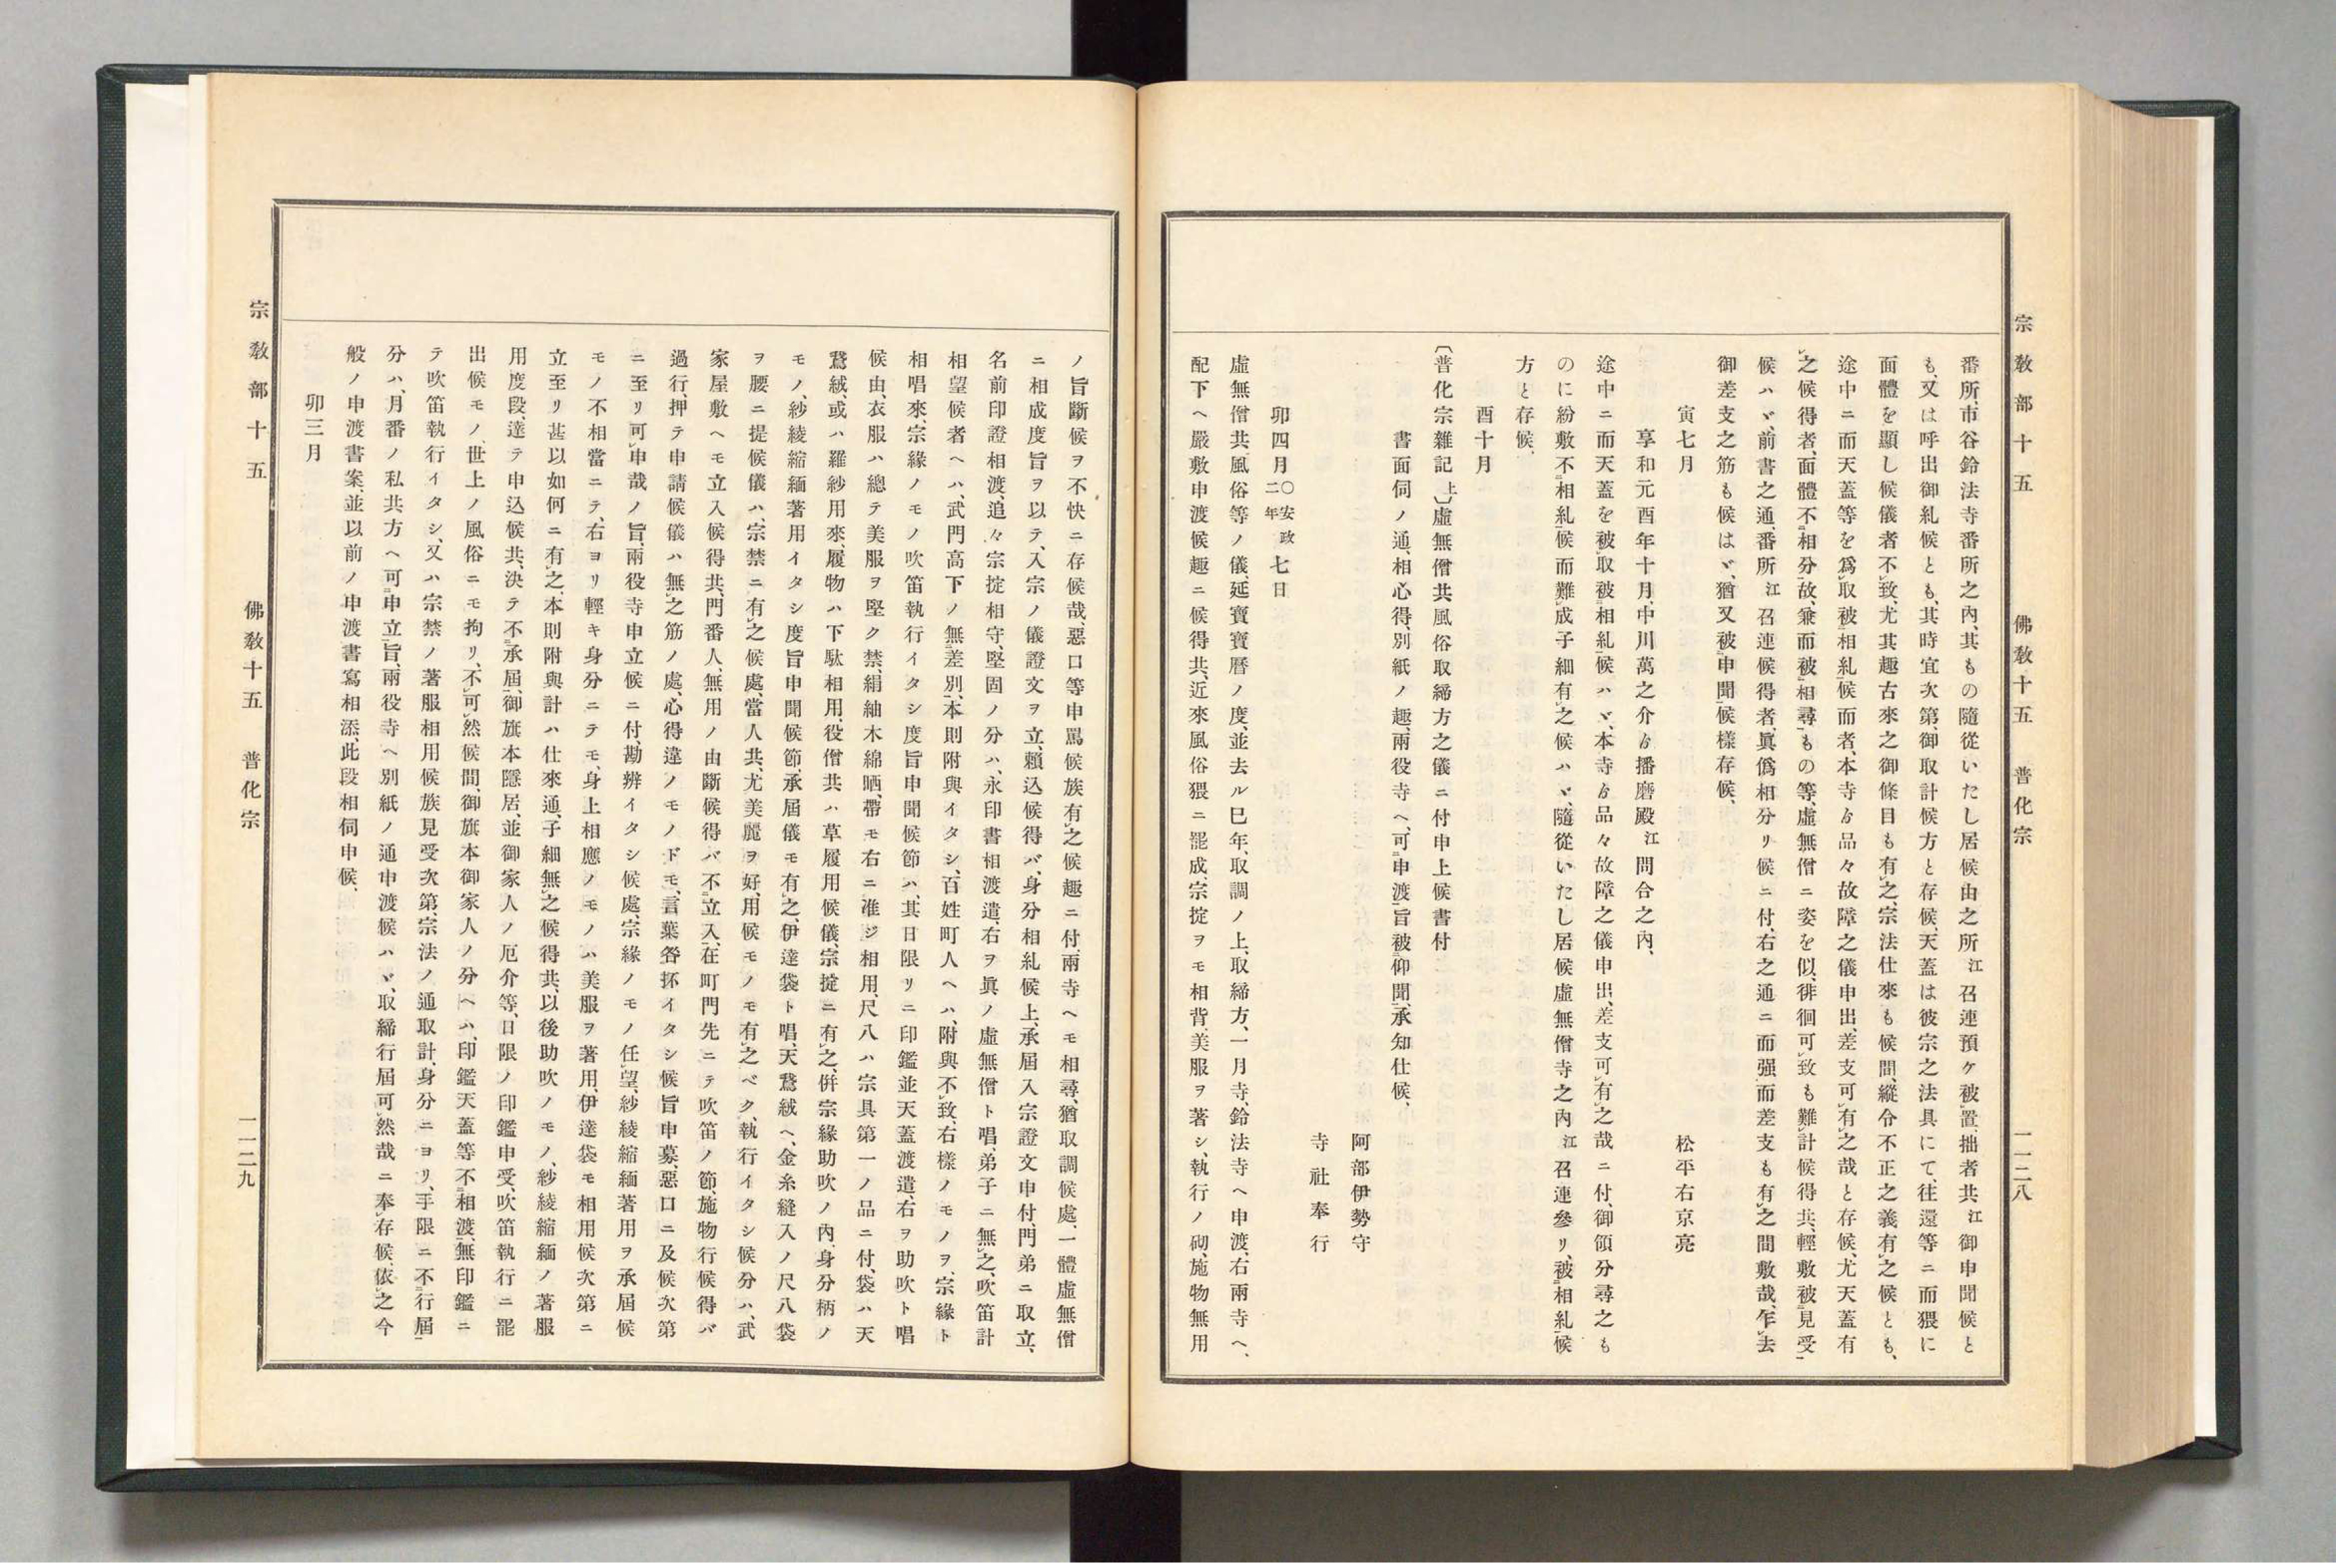 宗教部十五　佛教十五　普化宗　一一二八
番所、市谷鈴法寺番所之內、其もの隨從いたし居候由之所江召連預ケ被置、拙者共江御申聞候と
も、又は呼出御糺候とも、其時宜次第、御取計候方と存候、天蓋は彼宗之法具にて、往還等ニ而猥に
面體を顯し候儀者不致、尤其趣古來之御條目も有之、宗法仕來も候間、縱令不正之義有之候とも、
途中ニ而天蓋等を爲取、被相糺候而者、本寺ゟ品々故障之儀申出、差支可有之哉と存候、尤天蓋有
之候得者、面體不相分故、兼而被相尋もの等、虛無僧ニ姿を似、徘徊可致も難計候得共、輕敷被見受
候ハヾ、前書之通、番所江召連候得者、眞僞相分リ候ニ付、右之通ニ而强而差支も有之間敷哉、乍去
御差支之筋も候はヾ、猶又被申聞候樣存候、
寅七月　松平右京亮
享和元酉年十月、中川萬之介ゟ播磨殿江問合之內、
途中ニ而天蓋を被取、被相糺候ハヾ、本寺ゟ品々故障之儀申出、差支可有之哉ニ付、御領分尋之も
のに紛敷不相糺候而難成子細有之候ハヾ、隨從いたし居候虛無僧寺之內江召連參リ、被相糺候
方と存候、
酉十月
〔普化宗雜記上〕虛無僧共風俗取締方之儀ニ付申上候書付
書面伺ノ通、相心得、別紙ノ趣、兩役寺ヘ、可申渡旨被仰聞、承知仕候、
阿部伊勢守
寺社奉行
卯四月〇安政二年七日
虛無僧共、風俗等ノ儀、延寶寶曆ノ度、並去ル巳年、取調ノ上、取締方、一月寺、鈴法寺ヘ申渡、右兩寺ヘ、
配下ヘ嚴敷申渡候趣ニ候得共、近來風俗猥ニ罷成、宗掟ヲモ相背、美服ヲ著シ、執行ノ砌、施物無用
ノ旨斷候ヲ不快ニ存候哉、惡口等申罵候族有之候趣ニ付、兩寺ヘモ相尋、猶取調候處、一體虛無僧
ニ相成度旨ヲ以テ、入宗ノ儀證文ヲ立、賴込候得バ、身分相糺候上、承屆入宗證文申付、門弟ニ取立、
名前印證相渡、追々宗掟相守、堅固ノ分ハ、永印書相渡遣、右ヲ眞ノ虛無僧ト唱、弟子ニ無之、吹笛計
相望候者ヘハ、武門高下ノ無差別、本則附與イタシ、百姓町人ヘハ、附與不致、右樣ノモノヲ、宗緣ト
相唱來、宗緣ノモノ吹笛執行イタシ度旨申聞候節ハ、其日限リニ印鑑並天蓋渡遣、右ヲ助吹ト唱
候由、衣服ハ總テ美服ヲ堅ク禁、絹紬木綿晒、帶モ右ニ准ジ相用、尺八ハ宗具第一ノ品ニ付、袋ハ天
鵞絨、或ハ羅紗用來、履物ハ下駄相用、役僧共ハ草履用候儀、宗掟ニ有之、倂宗緣助吹ノ內、身分柄ノ
モノ、紗綾縮緬著用イタシ度旨申聞候節、承屆儀モ有之、伊達袋ト唱、天鵞絨ヘ、金糸縫入ノ尺八袋
ヲ腰ニ提候儀ハ、宗禁ニ有之候處、當人共、尤美麗ヲ好、用候モノモ有之ベク、執行イタシ候分ハ、武
家屋敷ヘモ立入候得共、門番人、無用ノ由斷候得バ、不立入、在町門先ニテ吹笛ノ節、施物行候得バ
過行、押テ申請候儀ハ無之筋ノ處、心得違ノモノドモ、言葉咎抔イタシ候旨申募、惡口ニ及候次第
ニ至リ可申哉ノ旨、兩役寺申立候ニ付、勘辨イタシ候處、宗緣ノモノ任望、紗綾縮緬著用ヲ承屆候
モノ不相當ニテ、右ヨリ輕キ身分ニテモ、身上相應ノモノハ美服ヲ著用、伊達袋モ相用候次第ニ
立至リ甚以如何ニ有之、本則附與計ハ仕來通、子細無之候得共、以後助吹ノモノ、紗綾縮緬ノ著服
用度段、達テ申込候共、決テ不承屆、御旗本隱居、並御家人ノ厄介等、日限ノ印鑑申受、吹笛執行ニ罷
出候モノ、世上ノ風俗ニモ拘リ、不可然候間、御旗本御家人ノ分ヘハ、印鑑天蓋等不相渡、無印鑑ニ
テ吹笛執行イタシ、又ハ宗禁ノ著服相用候族見受次第、宗法ノ通取計、身分ニヨリ、手限ニ不行屆
分ハ、月番ノ私共方ヘ可申立旨、兩役寺ヘ別紙ノ通申渡候ハヾ、取締行屆可然哉ニ奉存候、依之今
般ノ申渡書案、並以前ノ申渡書寫相添、此段相伺申候、
卯三月
宗教部十五　佛教十五　普化宗　一一二九